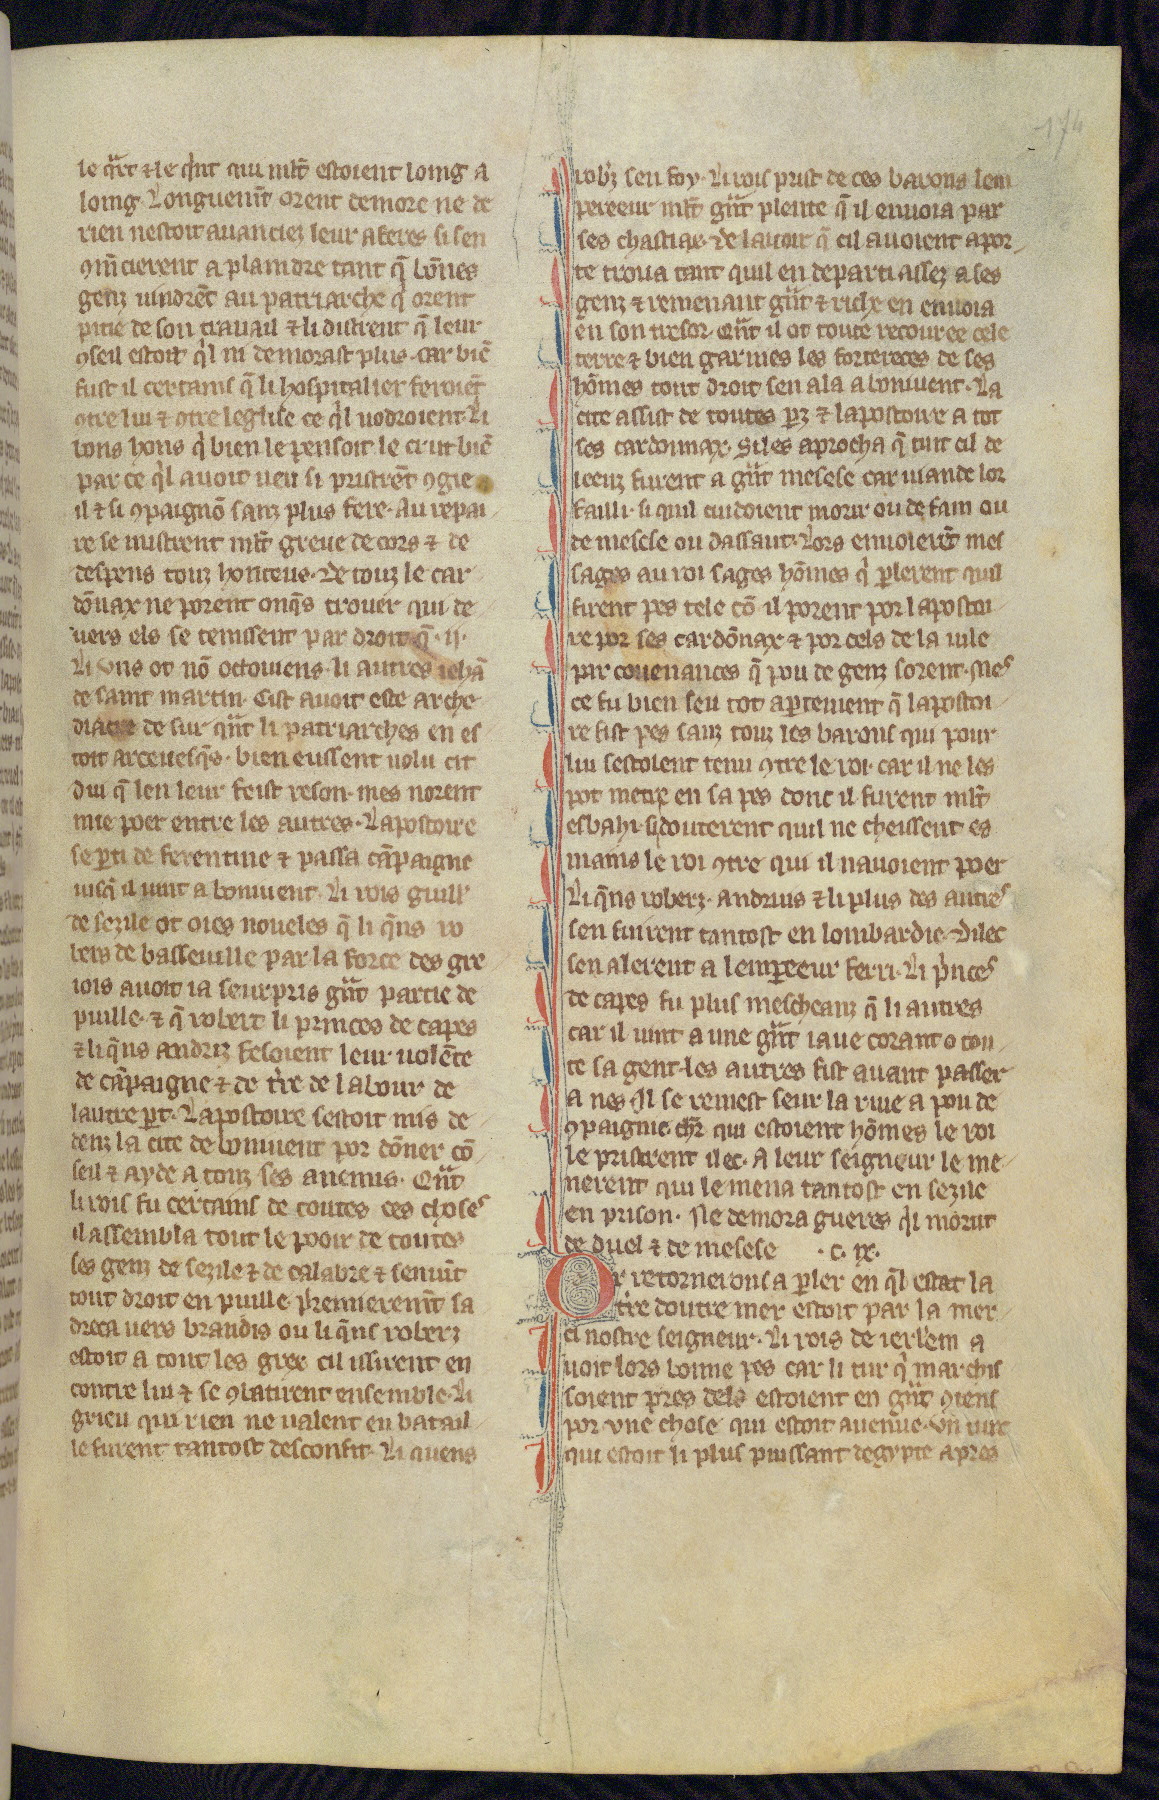 174
le q̄rt ⁊ le q̄int qui mlt̄ estoient loing a
loing. Longuemt̄ orent demore ne de
rien nestoit auanciez leur aferes si sen
ꝯmēcierent a plaindre tant q̄ bōnes
genz uindrēt au patriarche qͥ orent
pitie de son trauail ⁊ li distrent q̄ leur
ꝯseil estoit qͥl ni demorast plus. car biē
fust il certains q̄ li hospitalier feroiēt
ꝯtre lui ⁊ ꝯtre leglise ce qͥl uodroient. Li
bons hons qͥ bien le pensoit le crut biē
par ce qͥl auoit ueu si pristrēt ꝯgie
il ⁊ si ꝯpaignō sanz plus fere. Au repai
re se mistrent mlt̄ greue de cors ⁊ de
despens touz honteus. De touz le car
dōnax ne porent onq̄s trouer qui de
uers els se tenissent par droit q̄ .ij.
Li uns ot nō octouiens. li autres iehā
de saint martin. Cist auoit este arche
diacre de sur qn̄t li patriarches en es
toit arceuesq̄s. bien eussent uolu cit
dui q̄ len leur feist reson. mes norent
mie poer entre les autres. Lapostoire
se ꝑti de ferentine ⁊ passa cāpaigne
iusq̄ il uint a boniuent. Li rois guill'
de sezile ot oies noueles q̄ li q̄ns ro
bers de basseuille par la force des gre
iois auoit ia seurpris gn̄t partie de
puille. ⁊ q̄ robert li princes de capes
⁊ li q̄ns andriz fesoient leur uolēte
de cāpaigne ⁊ de t̄re de labour de
lautre ꝑt. Lapostoire sestoit mis de
denz la cite de boniuent por dōner cō
seil ⁊ ayde a touz ses anemis. Qn̄t
li rois fu certains de toutes ces choses
il assembla tout le pooir de toutes
ses genz de sezile ⁊ de calabre ⁊ senuīt
tout droit en puille. premieremt̄ sa
dreca uers brandis ou li q̄ns roberz
estoit a tout les grex cil issirent en
contre lui ⁊ se ꝯbatirent ensemble. Li
grieu qui rien ne ualent en batail
le furent tantost desconfit. Li quens
robz̄ sen foy. Li rois prist de ces barons lem
pereeur mlt̄ gn̄t plente q̄ il enuoia par
ses chastiax. De lauoir q̄ cil auoient apor
te troua tant quil en departi assez a ses
genz ⁊ remenant gn̄t ⁊ riche en enuoia
en son tresor. Qn̄t il ot toute recouree cele
terre ⁊ bien garnies les forterces de ses
hōmes tout droit sen ala a boniuent. La
cite assist de toutes ꝑz ⁊ lapostoire a tot
ses cardonnax. Si les aprocha q̄ tuit cil de
leenz furent a gn̄t mesese car uiande lor
failli. si quil cuidoient morir ou de fain ou
de mesese ou dassaut. Lors enuoierēt mes
sages au roi sages hōmes qͥ ꝑlerent quil
firent pes tele cō il porent por lapostoi
re por ses cardōnax ⁊ por cels de la uile
par couenances q̄ pou de genz sorent. Mes
ce fu bien seu tot aꝑtement q̄ lapostoi
re fist pes sanz touz les barons qui pour
lui sestoient tenu ꝯtre le roi. car il ne les
pot metre en sa pes donc il furent mlt̄
esbahi. si douterent quil ne cheissent es
mains le roi ꝯtre qui il nauoient poer
Li q̄ns roberz. andrius ⁊ li plus des autres
sen fuirent tantost en lombardie. Dilec
sen alerent a lempereeur ferri. Li princes
de capes fu plus mescheanz q̄ li autres
car il uint a une gn̄t iaue corant o tou
te sa gent. les autres fist auant passer
a nes. Il se remest seur la riue a pou de
ꝯpaignie. chr̄ qui estoient hōmes le roi
le pristrent ilec. A leur seigneur le me
nerent qui le mena tantost en sezile
en prison. Ne demora gueres qͥl morut
de duel ⁊ de mesese .c. ix.
Or retornerons a ꝑler en qͥl estat la
t̄re doutre mer estoit par la mer
ci nostre seigneur. Li rois de ierl̄em a
uoit lors bonne pes car li tur qͥ marchis
soient pres dels estoient en gn̄t ꝯtens
por une chose qui estoit auenue. Un turc
qui estoit li plus puissant degypte apres